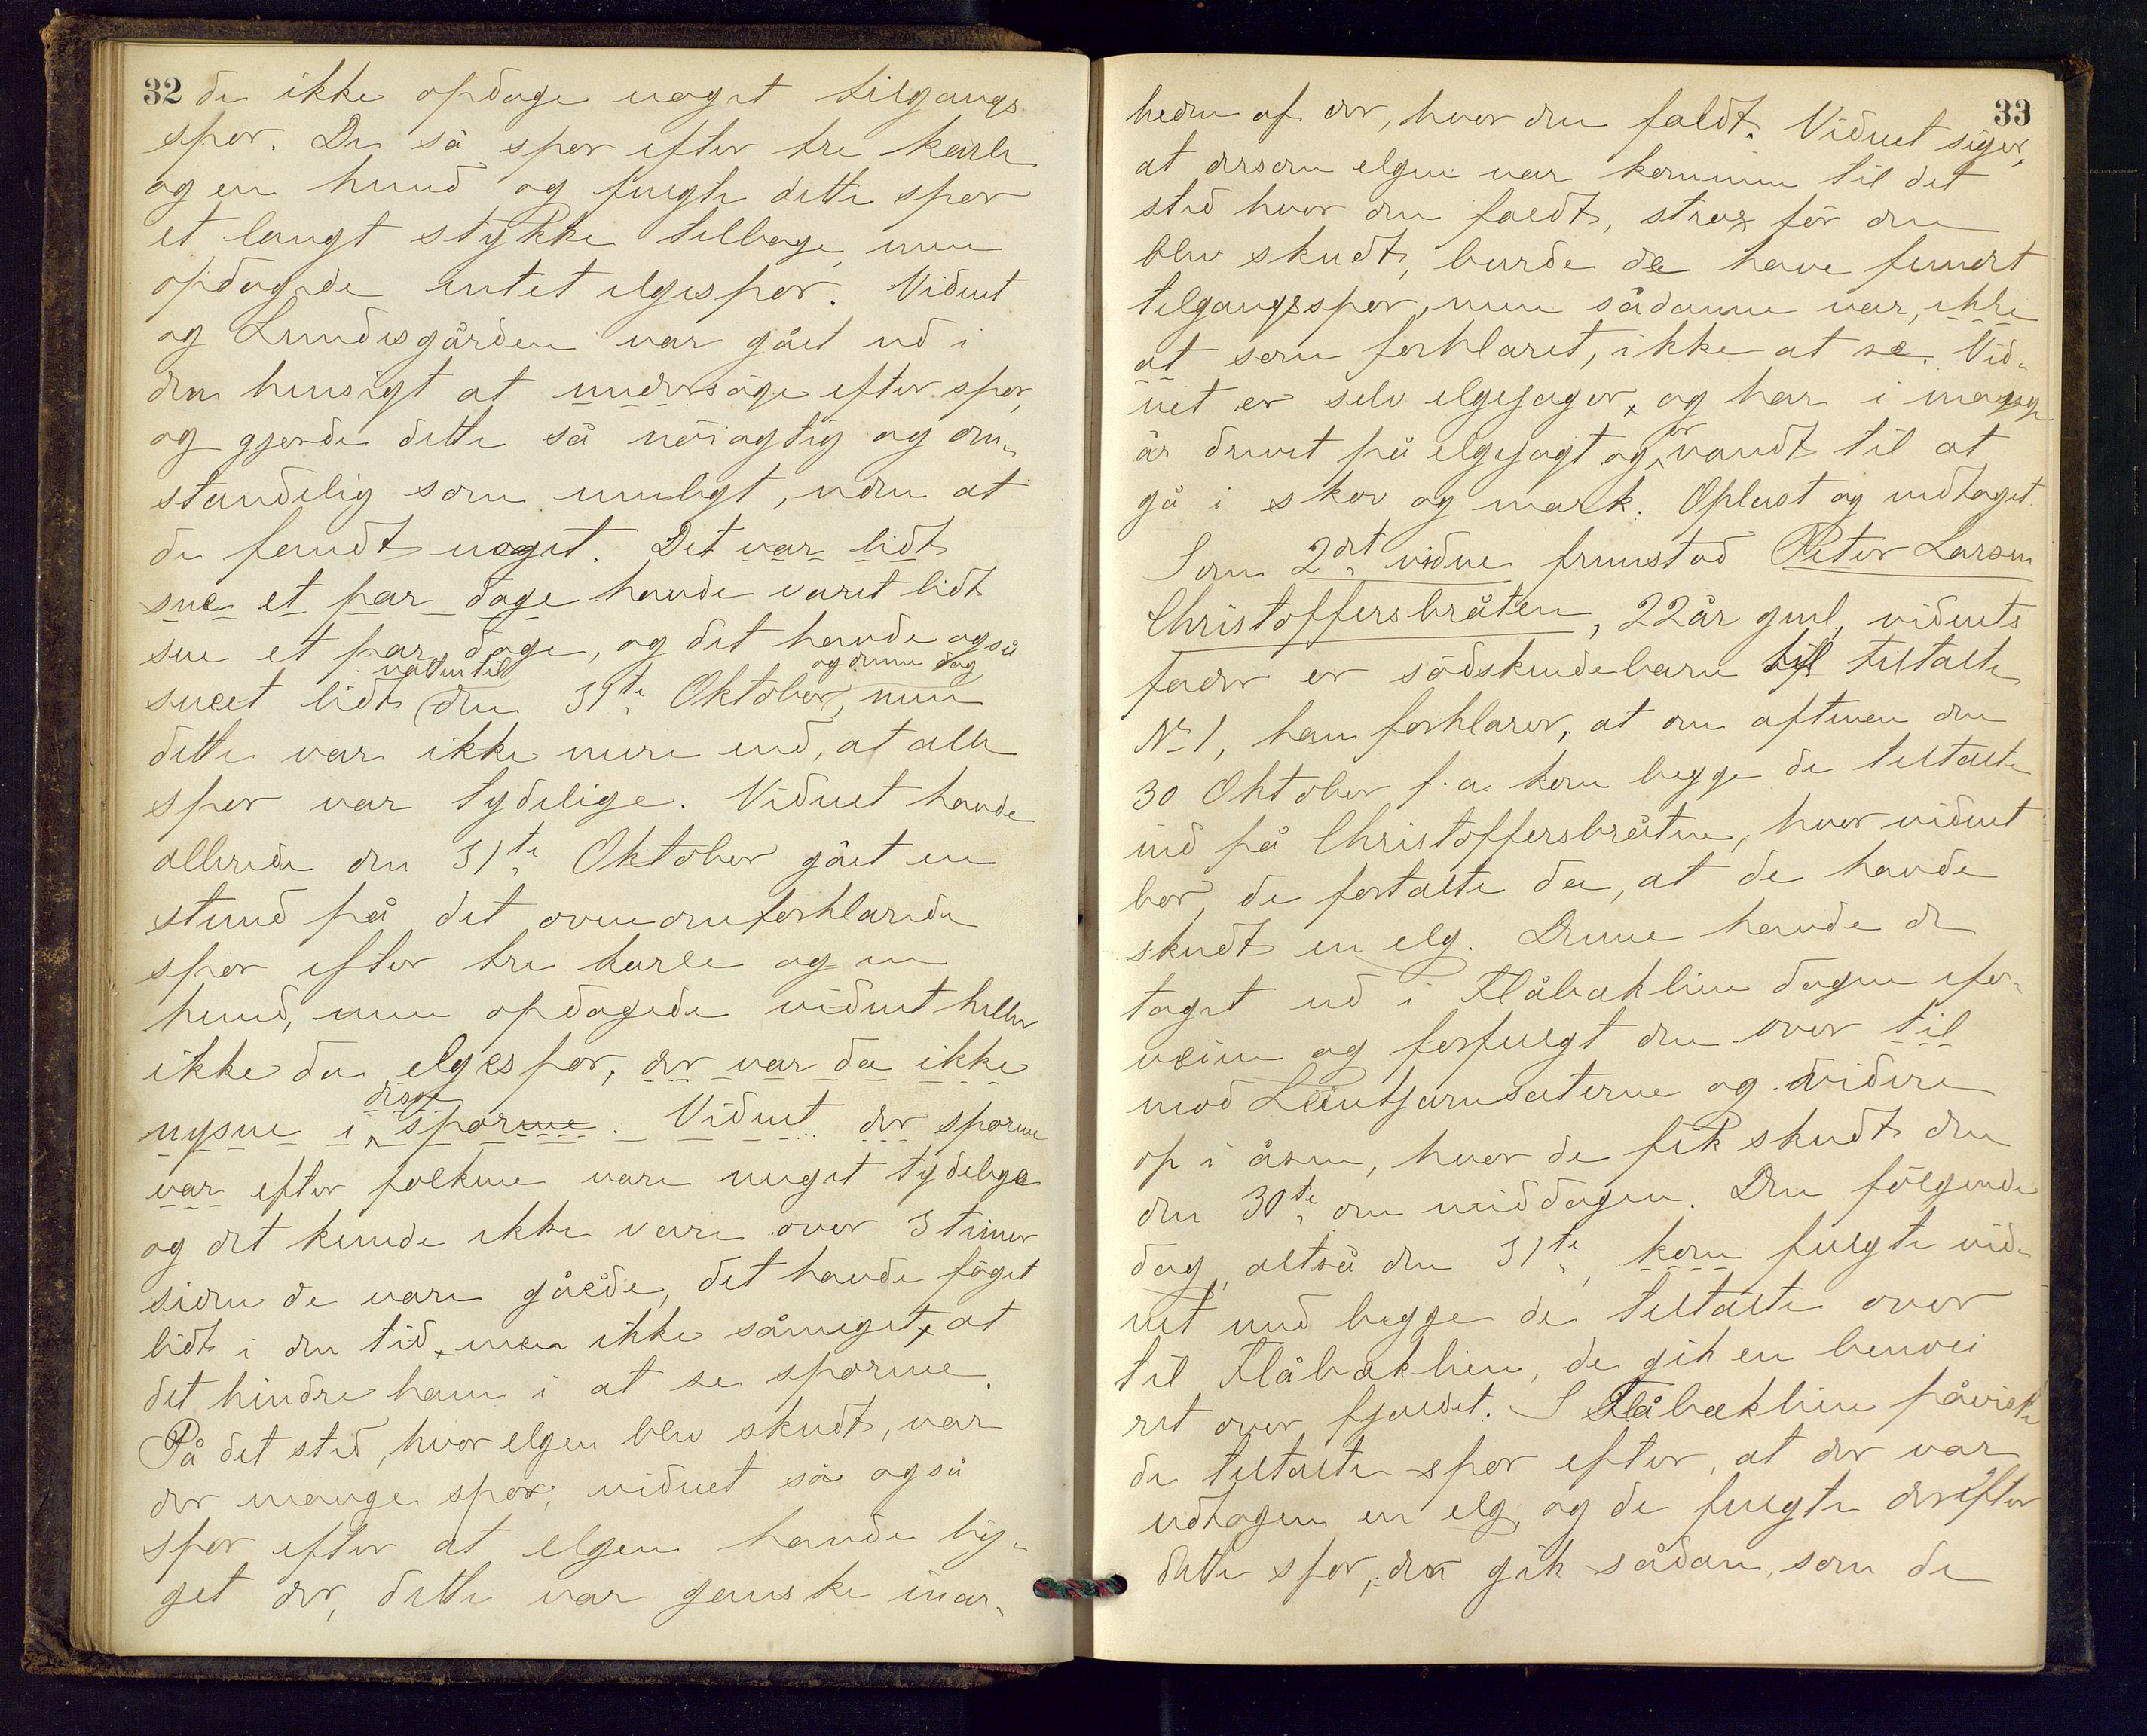 32 de ikke opdage noget tilgangs
spor. De så spor efter tre karle
og en hund og fulgte dette spor
et langt stykke tilbage, men
opdagede intet elgespor. Vidnet
og Lundesgården var gået ud i
den hensigt at undersøge efter spor,
og gjorde dette så nöiagtig og om„
standelig som muligt, uden at
de fandt noget. Det var lidt
sne et par dage havde været lidt
sne et par dage, og det havde også
natten til og denne dag
sneet lidt (den 31te Oktober, men
dette var ikke mere end, at alle
spor var tydelige. Vidnet havde
allerede den 31te Oktober gået en
stund på det ovenomforklarede
spor efter tre karle og en
hund, men opdagede vidnet heller
ikke da elgespor, der var da ikke
disse
nysne i sporene. Vidnet der sporene
var efter folkene vare meget tydelige
og det kunde ikke være over 3 timer
siden de vare gåede, det havde föget
lidt i den tid, men ikke såmeget, at
det hindre ham i at se sporene.
På det sted, hvor elgen blev skudt, var
der mange spor, vidnet så også
spor efter at elgen havde lig„
get der, dette var ganske i nær„
33
heden af der, hvor den faldt. Vidnet siger,
at dersom elgen var kommen til det
sted hvor den faldt, strax för den
blev skudt, burde de have fundet
tilgangsspor, men sådanne var, ikke
at som forklaret, ikke at se. Vid„
net er selv elgejæger, og har i mange
er
år drevet på elgejagt og vandt til at
gå i skov og mark. Oplæst og vedtaget.
Som 2det vidne fremstod Peter Larsen
Christoffersbråten, 22 år gml, vidnets
fader er södskendebarn til tiltalte
No 1, han forklarer, at om aftenen den
30 Oktober f.a. kom begge de tiltalte
ind på Christoffersbråten, hvor vidnet
bor, de fortalte da, at de havde
skudt en elg. Denne havde de
taget ud i Flåbæklien dagen ifor„
veien og forfulgt den over til
mod Leintjernsæterne og videre
op i åsen, hvor de fik skudt den
den 30te om middagen. Den fölgende
dag, altså den 31te, kom fulgte vid„
net med begge de tiltalte over
til Flåbæklien, de gik en benvei
ret over fjeldet. I Flåbæklien påviste
de tiltalte spor efter, at der var
udtagen en elg, og de fulgte derefter
dette spor, der gik sådan, som de